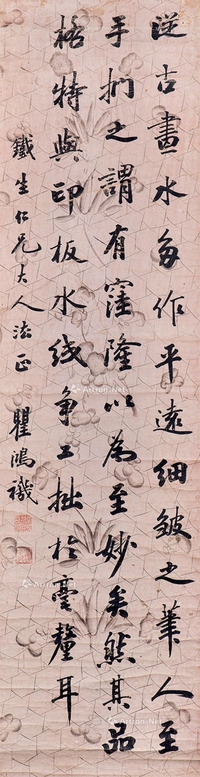 從古畫水多作平遠細皴之筆人至
手捫之謂有窪隆以為至妙矣然其品
格特與印板水綫爭工拙於毫釐耳
鐵生仁兄大人法正
瞿鴻禨